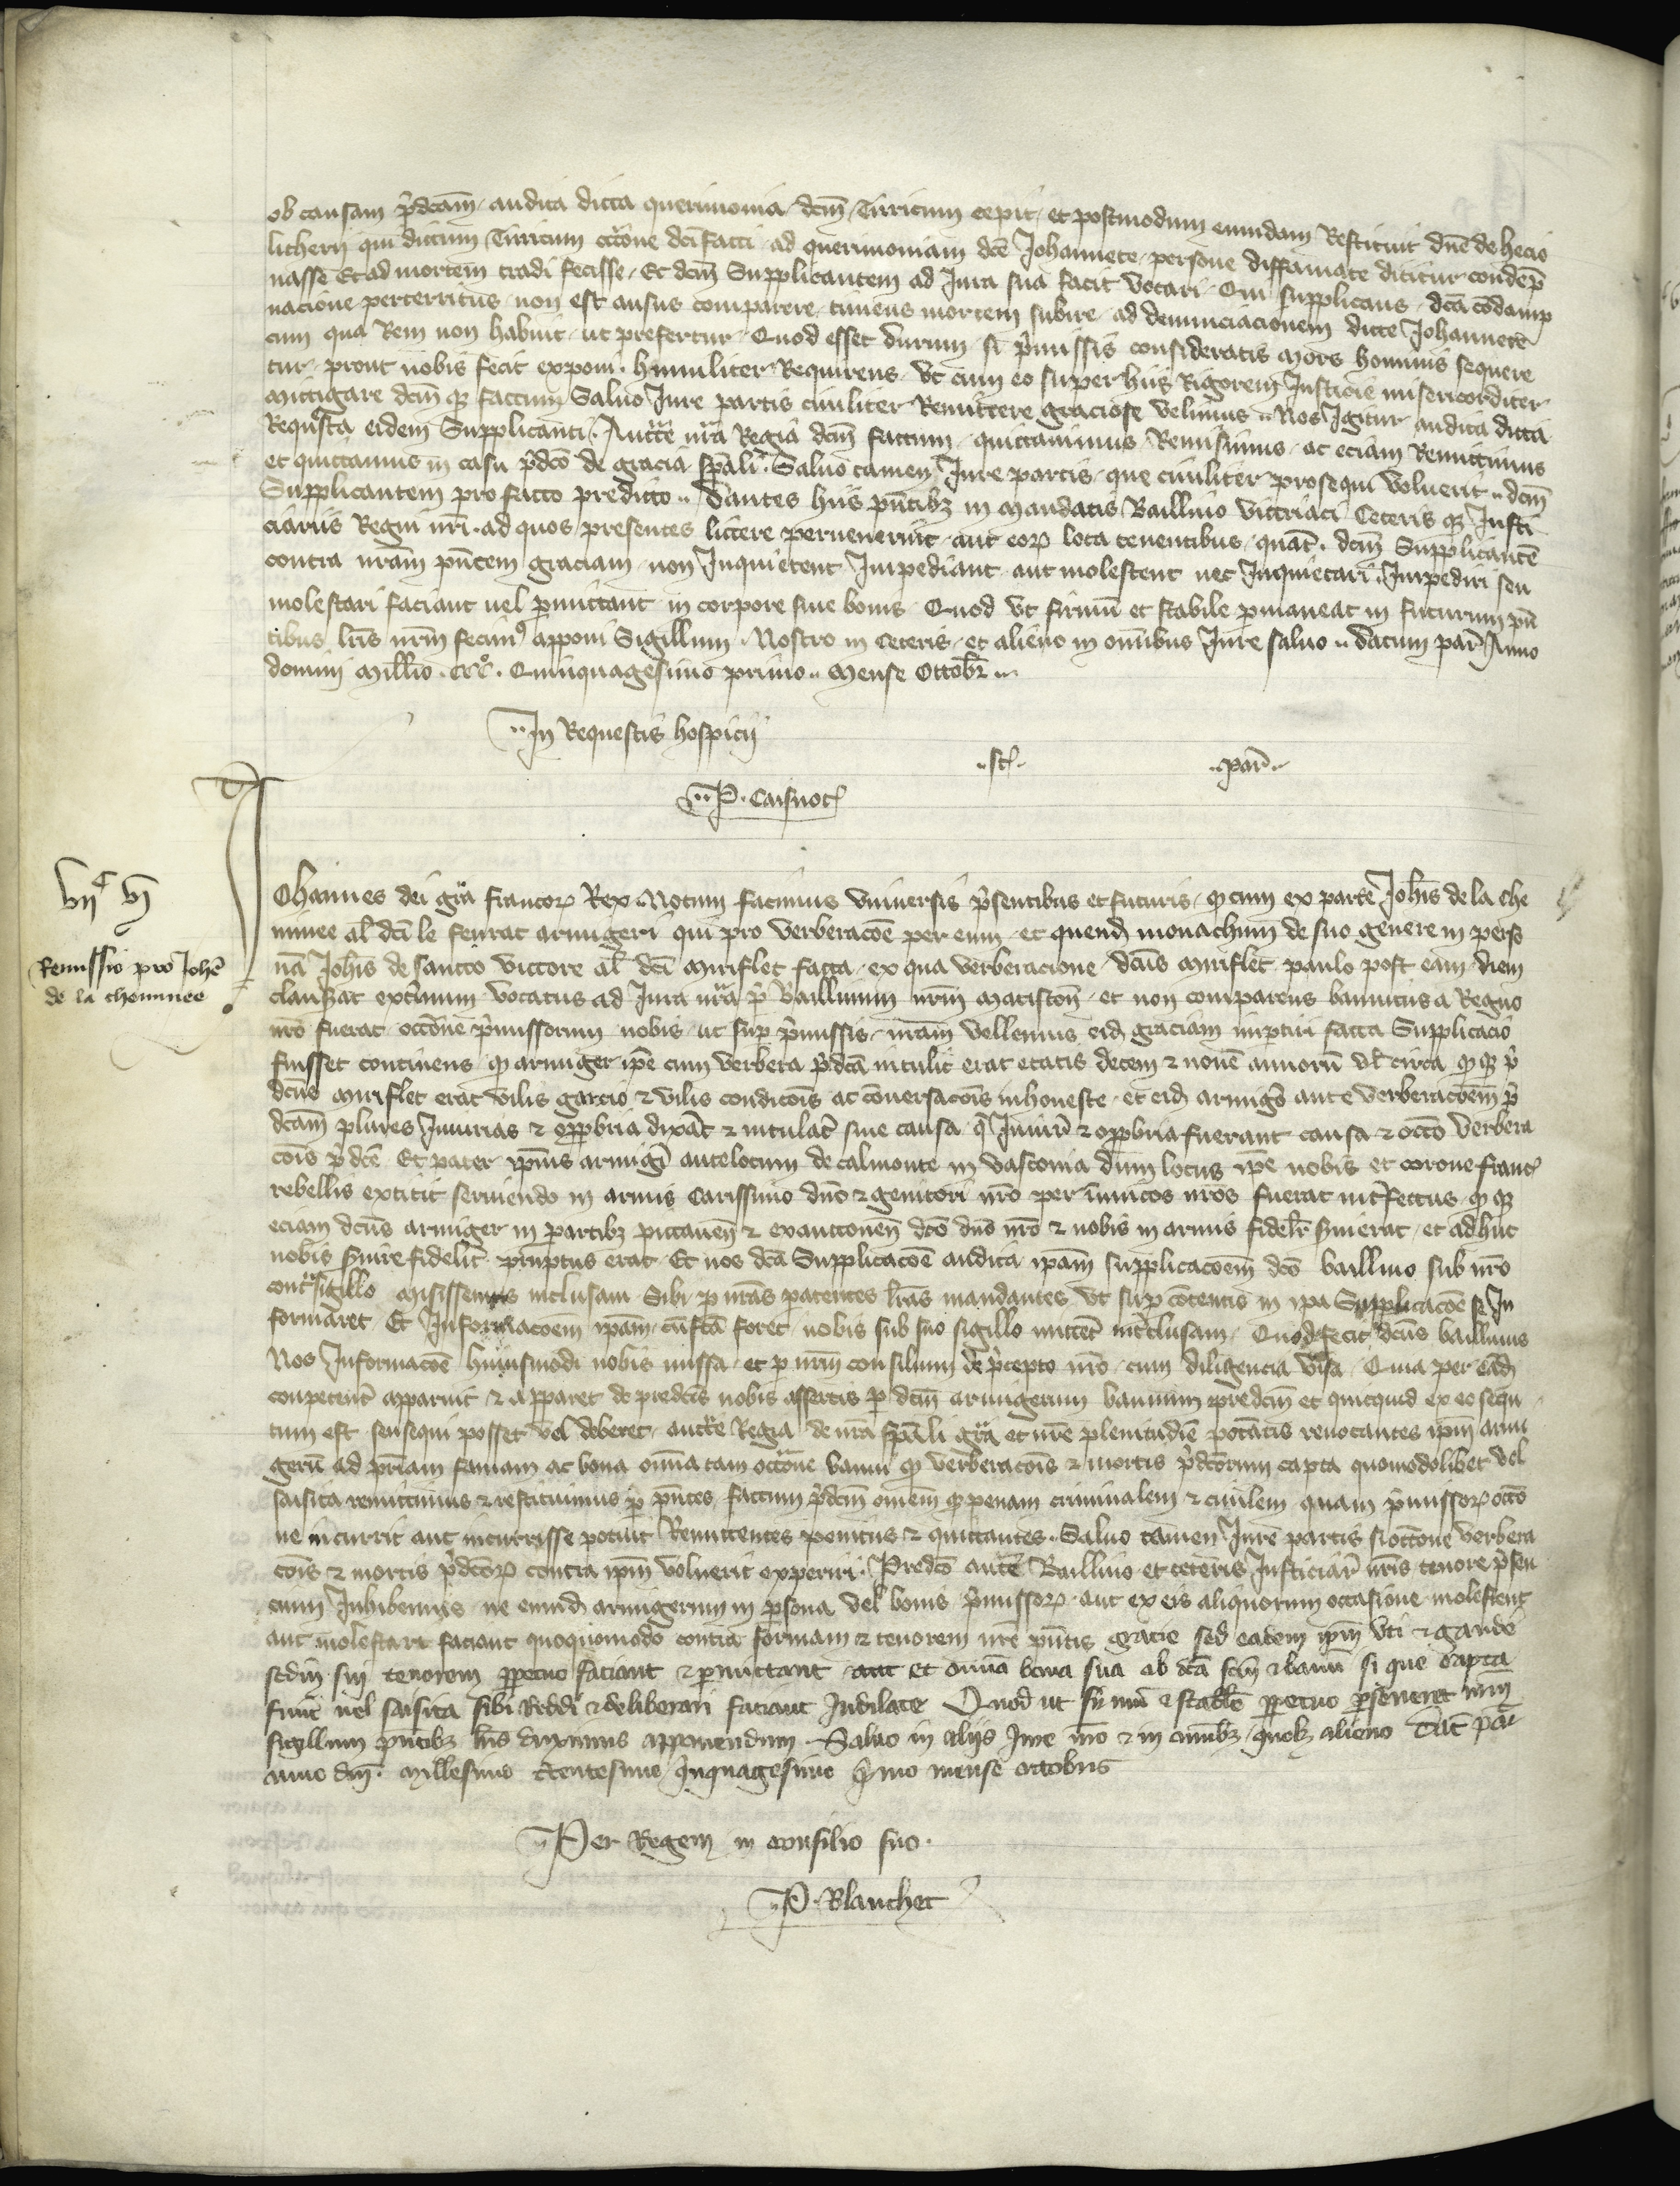 ob causam p̃dcãm audita dicta querimonia dcm̃ Tirricum cepit et postmodum eundem Restituit dne de hecio
licherii qui dictum Tirricum occõne dci facti ad querimoniam dce Johannete persone diffamate dicitur condep̃
nasse Et ad mortem tradi fecisse Et dcm̃ Supplicantem ad Jura sua facit vocari Qui supplicans dcã cõdamp
nacione perterritus non est ausus comparere timens mortem subire ad denunciacionem dicte Johannete
cum qua Rem non habuit ut prefertur Quod esset durum si p̃missis consideratis mors hominis sequere
tur prout nobis fecit exponi humiliter Requirens ut cum eo super hiis Rigorem Justicie misericorditer
mittigare dcm̃ qz factum Saluo Jure partis ciuiliter Remittere graciose velimus Nos Igitur audita dicta
Requesta eidem Supplicanti Auctte nrã Regia dcm̃ factum quittauimus Remisimus ac eciam Remittimus
et quittamus in casu p̃dco de gracia sp̃ali Saluo tamen Jure partis que ciuiliter prosequi voluerit dcm̃
Supplicantem pro facto predicto Dantes hiis pñtibz in mandatis Baillivo victriaci Ceteris qz Justi
ciariis Regni nrĩ ad quos presentes littere peruenerint aut eorz loca tenentibus quat̃ dcm̃ Supplicantẽ
contra nrãm pñtem graciam non Inquietent Impediant aut molestent nec Inquietari Impediri seu
molestari faciant uel p̃mittant in corpore siue bonis Quod ut firmũ et stabile p̃maneat in futurum pñ
tibus lrĩs nrm̃ fecim9 apponi Sigillum Nostro in Ceteris et alieno in omnibus Jure saluo Datum par̃ Anno
domini millio CCCo Quinquagesimo primo mense Octobr̃
In Requestis hospicii
par̃
P.
vijc vj
Remissio pro Johẽ
de la cheminee
Johannes dei grã francorz Rex Notum facimus vniuersis p̃sentibus et futuris q cum ex parte Johĩs de la che
minee al̃ dci le feurat armigeri qui pro verberacõe per eum et quend̃ monachum de suo genere in perso
nã Johĩs de sancto victore al̃ dci miriflet facta ex qua verberacione dcũs miriflet paulo post eam diem
clauserat extremum vocatus ad Jura nrã p̃ Baillivum nrm̃ matiscoñ et non comparens bannitus a Regno
nrõ fuerat occõne p̃missorum nobis ut sup p̃missis nrãm vellemus eid̃ graciam imptiri facta Supplicacio
fuisset continens q armiger ipẽ cum verbera p̃dcã intulit erat etatis decem & nouẽ annorũ vl̃ circa q qz p̃
dcũs miriflet erat vilis garcio & vilis condicõis ac cõuersacõis inhoneste et eid̃ armigõ ante verberacõem p̃
dcãm plures Iniurias & opp̃bria dixãt & intulat̃ sine causa q̃ Iniurie & opp̃bria fuerant causa & occõ verbera
cõis p̃dcẽ Et pater ipĩus armigĩ ante locum de calmonte in vasconia dum locus ipẽ nobis et corone franc̃
rebellis extitit seruiendo in armis Carissimo dnõ & genitori nrõ per inimicos nrõs fuerat int̃fectus q qz
eciam dcũs armiger in partibz pictauen̄ & xanctonen̄ dcõ dnõ nrõ & nobis in armis fidelr̃ suierat et adhuc
nobis suire fidelit̃ promptus erat Et nos dcã Supplicacõe audita ipãm supplicacoem dcõ baillivo sub nrõ
contrasigillo misissemus inclusam Sibi p nrãs patentes lrãs mandantes ut sup cõtentis in ipa Supplicacõe se In
formaret Et Informacoem ipãm cũ facta foret nobis sub suo sigillo mitteret int̃clusam Quod fecit dcũs baillivus
Nos Informacõe huiusmodi nobis missa et p nrm̃ consilium de p̃cepto nrõ cum diligencia visa Quia per eãd̃
conpetent̃ apparuit & apparet de predcis nobis assertis p dcm̃ armigerum bannum predcm̃ et quicquid ex eo sequ
tum est seu sequi posset vel deberet auctte Regia de nrã sp̃ali grã et nrẽ plenitudiẽ potestatis reuocantes ipm̃ armi
gerũ ad p̃riam famam ac bona omia tam occõne banni q verberacõis & mortis p̃dcorum capta quomodolibet vel
saisita remittimus & restituimus p̃ pñtes factum p̃dcm̃ omem̃ qz penam criminalem & ciuilem quam p̃missorz occõ
ne incurrit aut incurrisse potuit Remittentes penitus & quittantes Saluo tamen Jure partis si occõne verbera
cõis & mortis p̃dcorz contra ipm̃ voluerit experiri Predcõ autẽ Baillivo et ceteris Justiciar̃ nrĩs tenore p̃sen
cium Inhibemus ne eund̃ armigerum in p̃sona vel bonis p̃missorz aut ex eis aliquorum occasione molestent
aut molestari faciant quoquomodo contra formam & tenorem nrẽ pñtis gracie sed eadem ipm̃ vti & gaude
sedm̃ suu tenorem p̃petuo faciant & p̃mittant et omia bona sua ob dcã & bannũ si que capta
sint uel saisita sibi reddi & deliberari faciant Indilate Quod ut firmũ & stabile p̃petuo p̃seueret nrm̃
sigillum pñtibz lrĩs duximus apponendum Saluo in aliis Jure nrõ & in omĩbz quolz alieno Dat̃ par̃
anno dnĩ millesimo tcentesimo quinquagesimo primo mense octobris
Per Regem in consilio suo
P. Blanchet